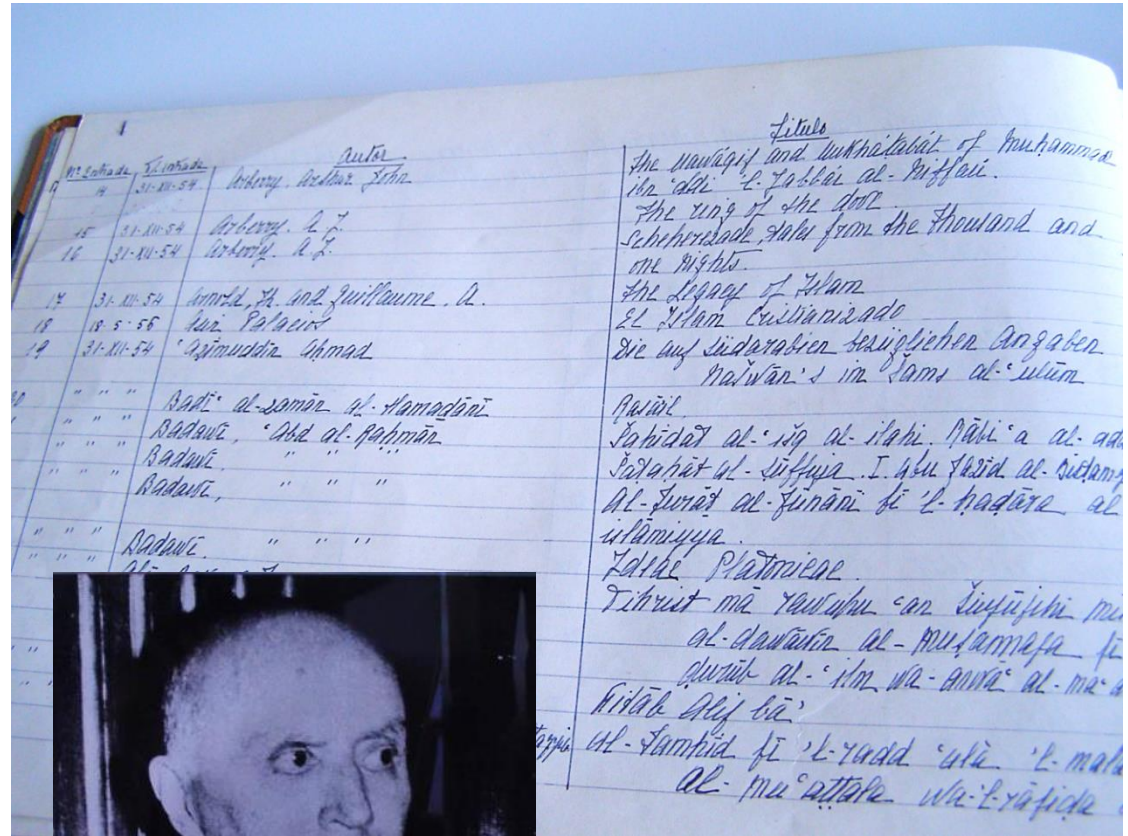 1
Nº Entrada F. entrada Autor Titulo
14 31-XII-54 Arberry, Arthur John The mawāqif and mukhátabát of Muhammad
ibn ʿAbdi 'l-Jabbár al-Niffarí.
The ring of the dove.
15 31-XII-54 Arberry, A. J.
16 31-XII-54 Arberry, A. J. Scheherezade, tales from the Thousand and
one nights.
17 31-XII-54 Arnold, Th. and Guillaume, A. The Legacy of Islam
18 18-5-56 Asin Palacios El Islam Cristianizado
19 31-XII-54 ʿAzīmuddīn Ahmad Die auf südarabien bezüglichen Angaben
Našwān's im Šams al-ʿulūm
20 " " " Badīʿ al-zamān al-Hamadānī Rasāʾil
" " " Badawī, ʿAbd al-Rahmān Šahīdat al-ʿišq al-ilahi. Rābiʿa al-
" " " Badawī, " " " Šaṭaḥāt al-ṣūfiyya. I. Abu Yazid al-
Badawī, " " " al-Turāṯ al-Yūnānī fī 'l-ḥaḍāra al
islāmiyya.
" " " Badawī. " " " Ideae Platonicae
" " " Fihrist mā rawāhu ʿan šuyūjihi
" " al-dawāwin al-muṣannafa fī
" " ḍurūb al-ʿilm wa-anwāʿ al-
Kitāb Alif bāʾ
al-Tamhīd fī 'l-radd ʿalà 'l-
al-muʿaṭṭala wa-l-rāfiḍa